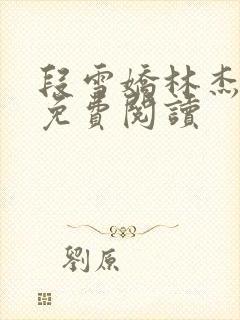 段雪嬌林杰
免費閱讀
劉原